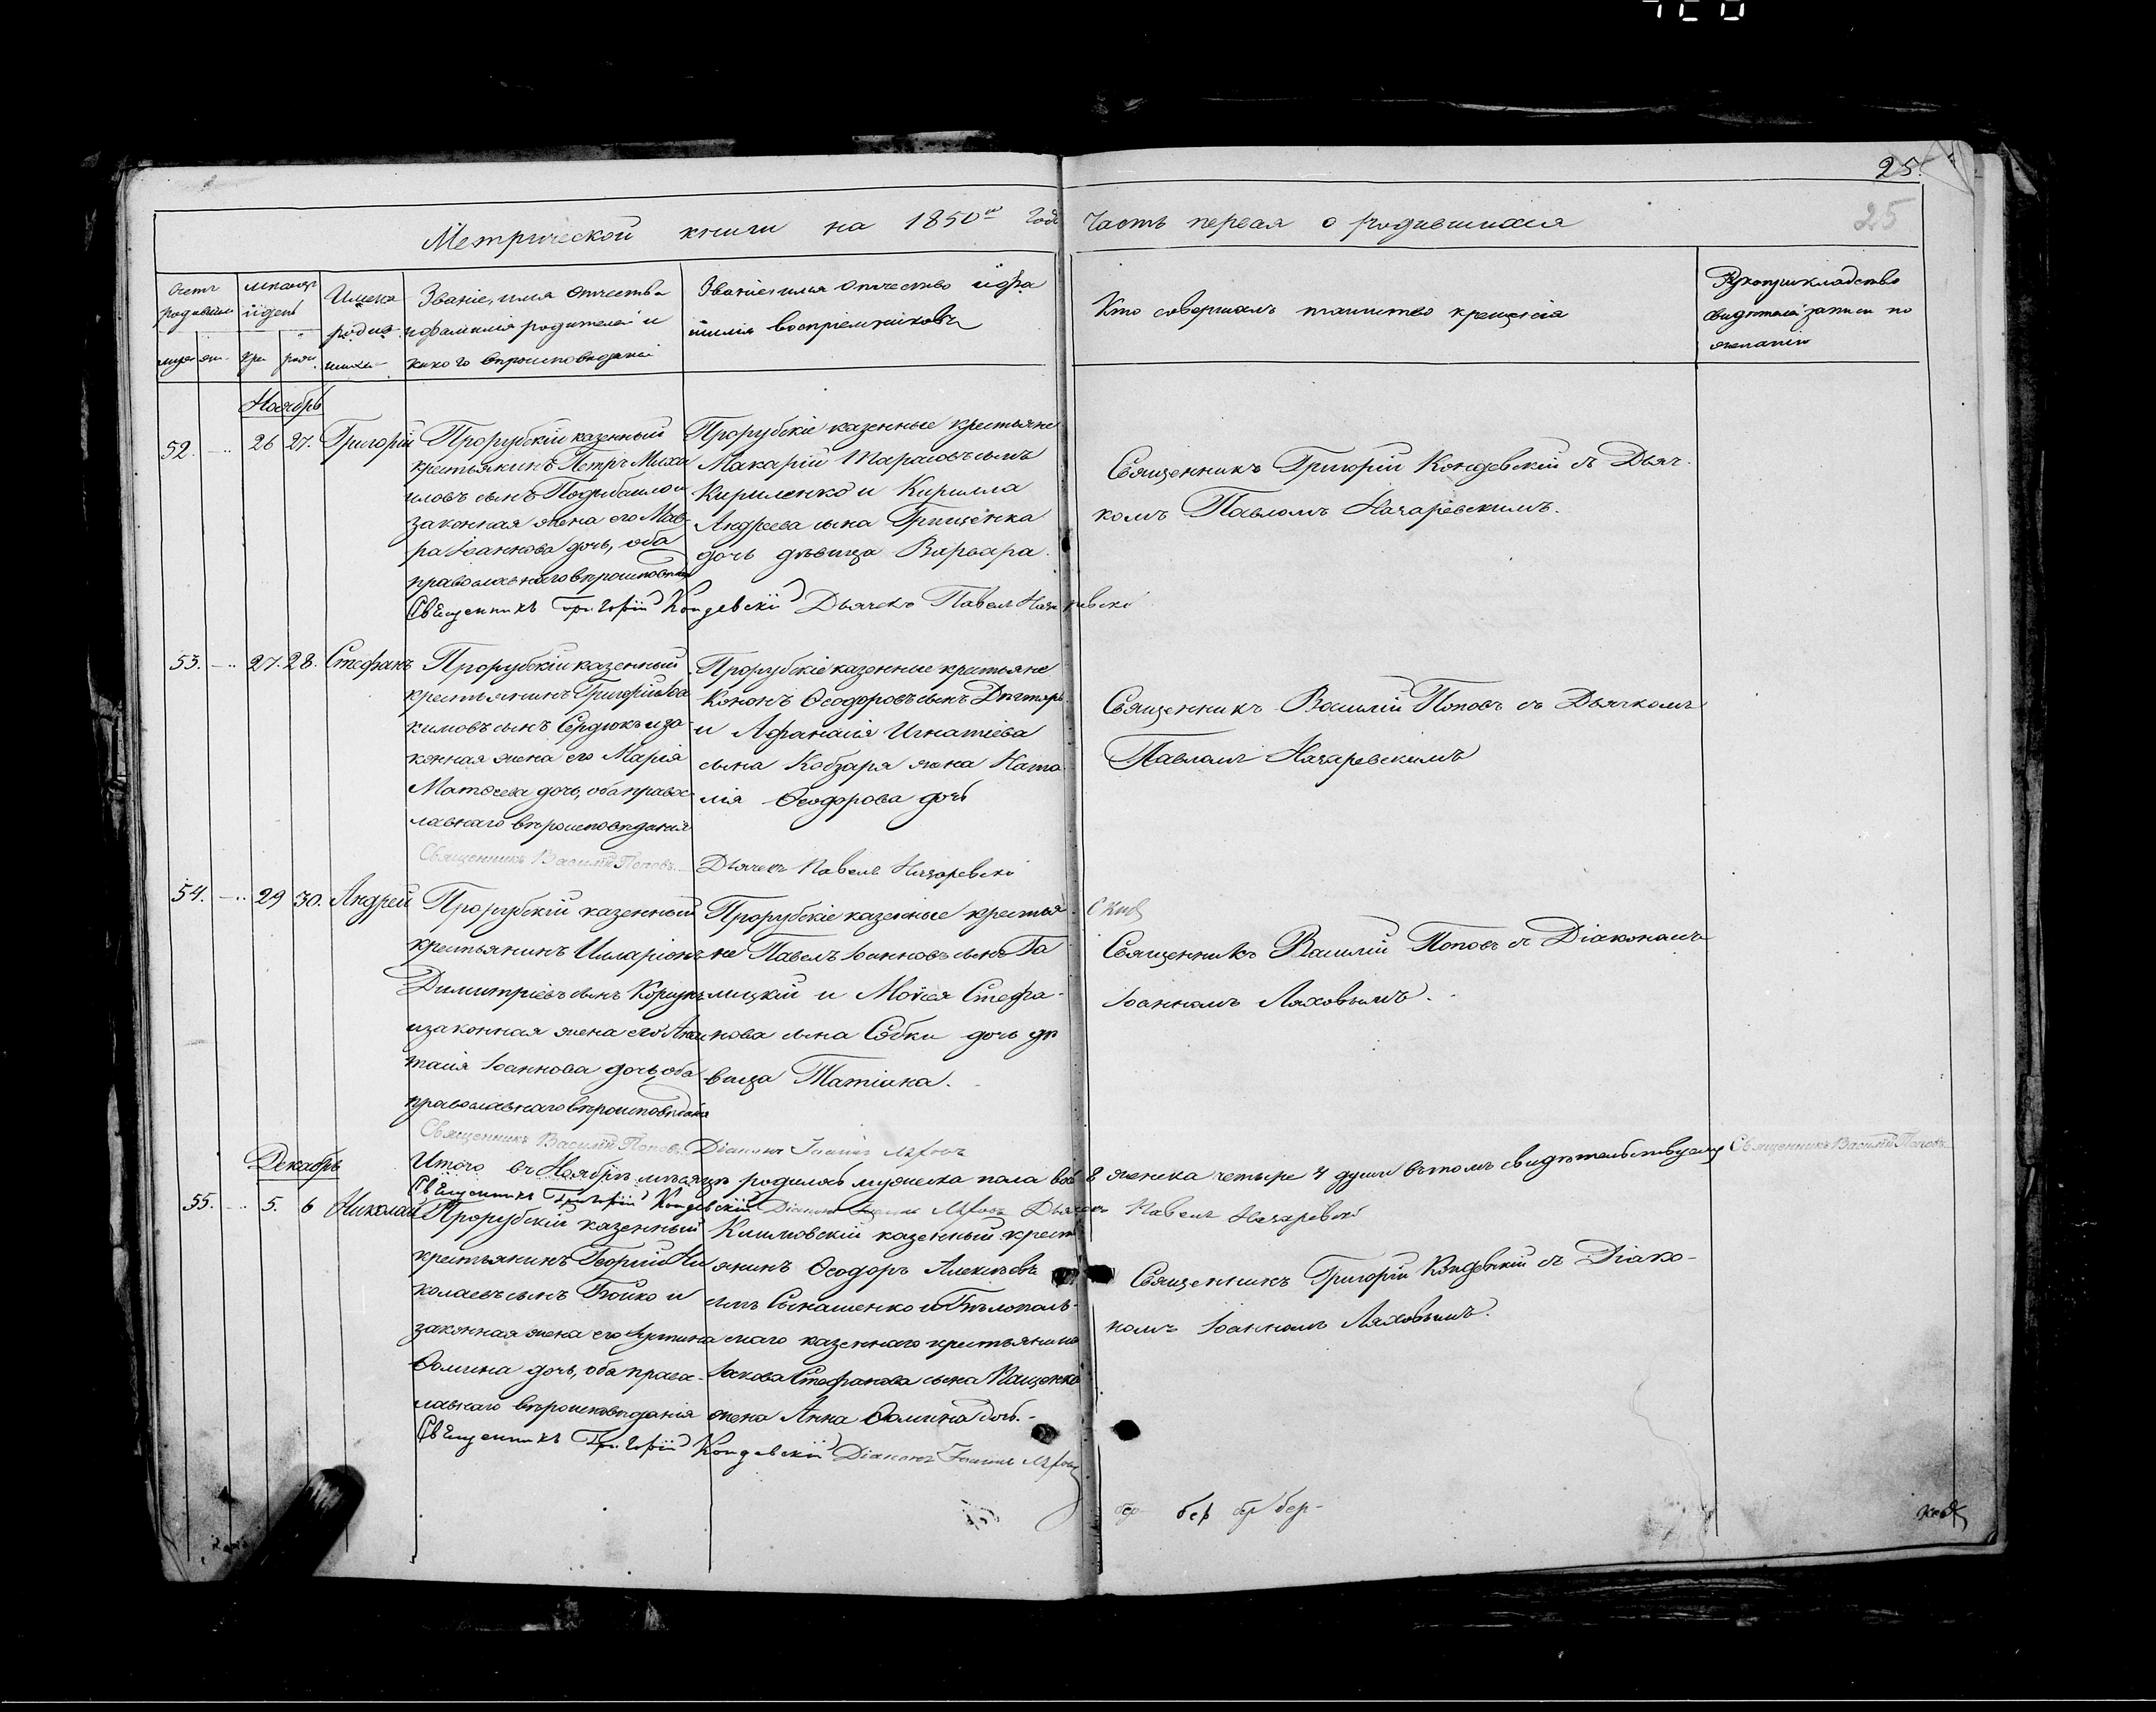 25.
25
Метрической книги на 1850й годъ Часть первая о родившихся
Счетъ родивших
мужес жен.
мѣсяцъ и день
кре рож
Имена родив шихся
Званіе, имя отчество
и фамилія родителей и
какого вѣроисповѣданія
Званіе имя отчество и фа
милія воспріемниковъ
Кто совершалъ таинство крещенія
Рукоприкладство
свидѣтелей записи по
желанію
Ноябрь
52. 26 27. Григорій
Прорубскій казенный
крестьянинъ Петръ Миха
иловъ сынъ и
законная жена его Мав
ра Іоаннова дочь, оба
православнаго вѣроисповѣданія
Прорубскіе казенные крестьяне
Макарій Тарасовъ сынъ
Кириленко и Кирилла
Андреева сына Грищенка
дочь дѣвица Варвара.
Священникъ Григорій Кондевскій съ Дьяч
комъ Павломъ Назаревскимъ.
Священникъ Григорій Кондевскій Дьячекъ Павелъ Назаревскій
53. 27. 28. Стефанъ
Прорубскій казенный
крестьянинъ Григорій Іоа
кимовъ сынъ Сердюкъ и за
конная жена его Марія
Матѳеева дочь, оба правос
лавнаго вѣроисповѣданія
Прорубскіе казенные крестьяне
Кононъ Ѳеодоровъ сынъ Дегтярь
и Афанасія Игнатіева
сына Кобзаря жена Ната
лія Ѳеодорова дочь
Священникъ Василій Поповъ съ Дьячкомъ
Павломъ Назаревскимъ
Священникъ Василій Поповъ. Дьячекъ Павелъ Назаревскій
54. 29 30. Андрей
Прорубскій казенный
крестьянинъ Илларіонъ
Димитріевъ сынъ Коршунъ
и законная жена его Анас
тасія Іоаннова дочь, оба
православнаго вѣроисповѣданія
Прорубскіе казенные крестья
не Павелъ Іоанновъ сынъ Га
лицкій и Моѵсея Стефа
нова сына Собки дочь дѣ
вица Татіана.
Священникъ Василій Поповъ съ Діакономъ
Іоанномъ Ляховымъ.
Священникъ Василій Поповъ. Діаконъ Іоаннъ Ляховъ
Итого въ Ноябрѣ мѣсяцѣ родилось мужеска пола 8 женска четыре 4 души въ томъ свидѣтельствуемъ Священникъ Василій Поповъ
Священникъ Григорій Кондевскій Діаконъ Іоаннъ Ляховъ Дьячекъ Павелъ Назаревскій
Декабрь
55. 5. 6 Николай
Прорубскій казенный
крестьянинъ Георгій Ни
колаевъ сынъ Бойко и
законная жена его Іустина
Ѳомина дочь, оба правос
лавнаго вѣроисповѣданія
Климовскій казенный крест
янинъ Ѳеодоръ Алексѣевъ
сынъ Сынашенко и Бѣлополь
скаго казеннаго крестьянина
Іакова Стефанова сына Пащенко
жена Анна Ѳомина дочь.
Священникъ Григорій Кондевскій съ Діако
номъ Іоанномъ Ляховымъ.
Священникъ Григорій Кондевскій Діаконъ Іоаннъ Ляховъ
бер бер бер